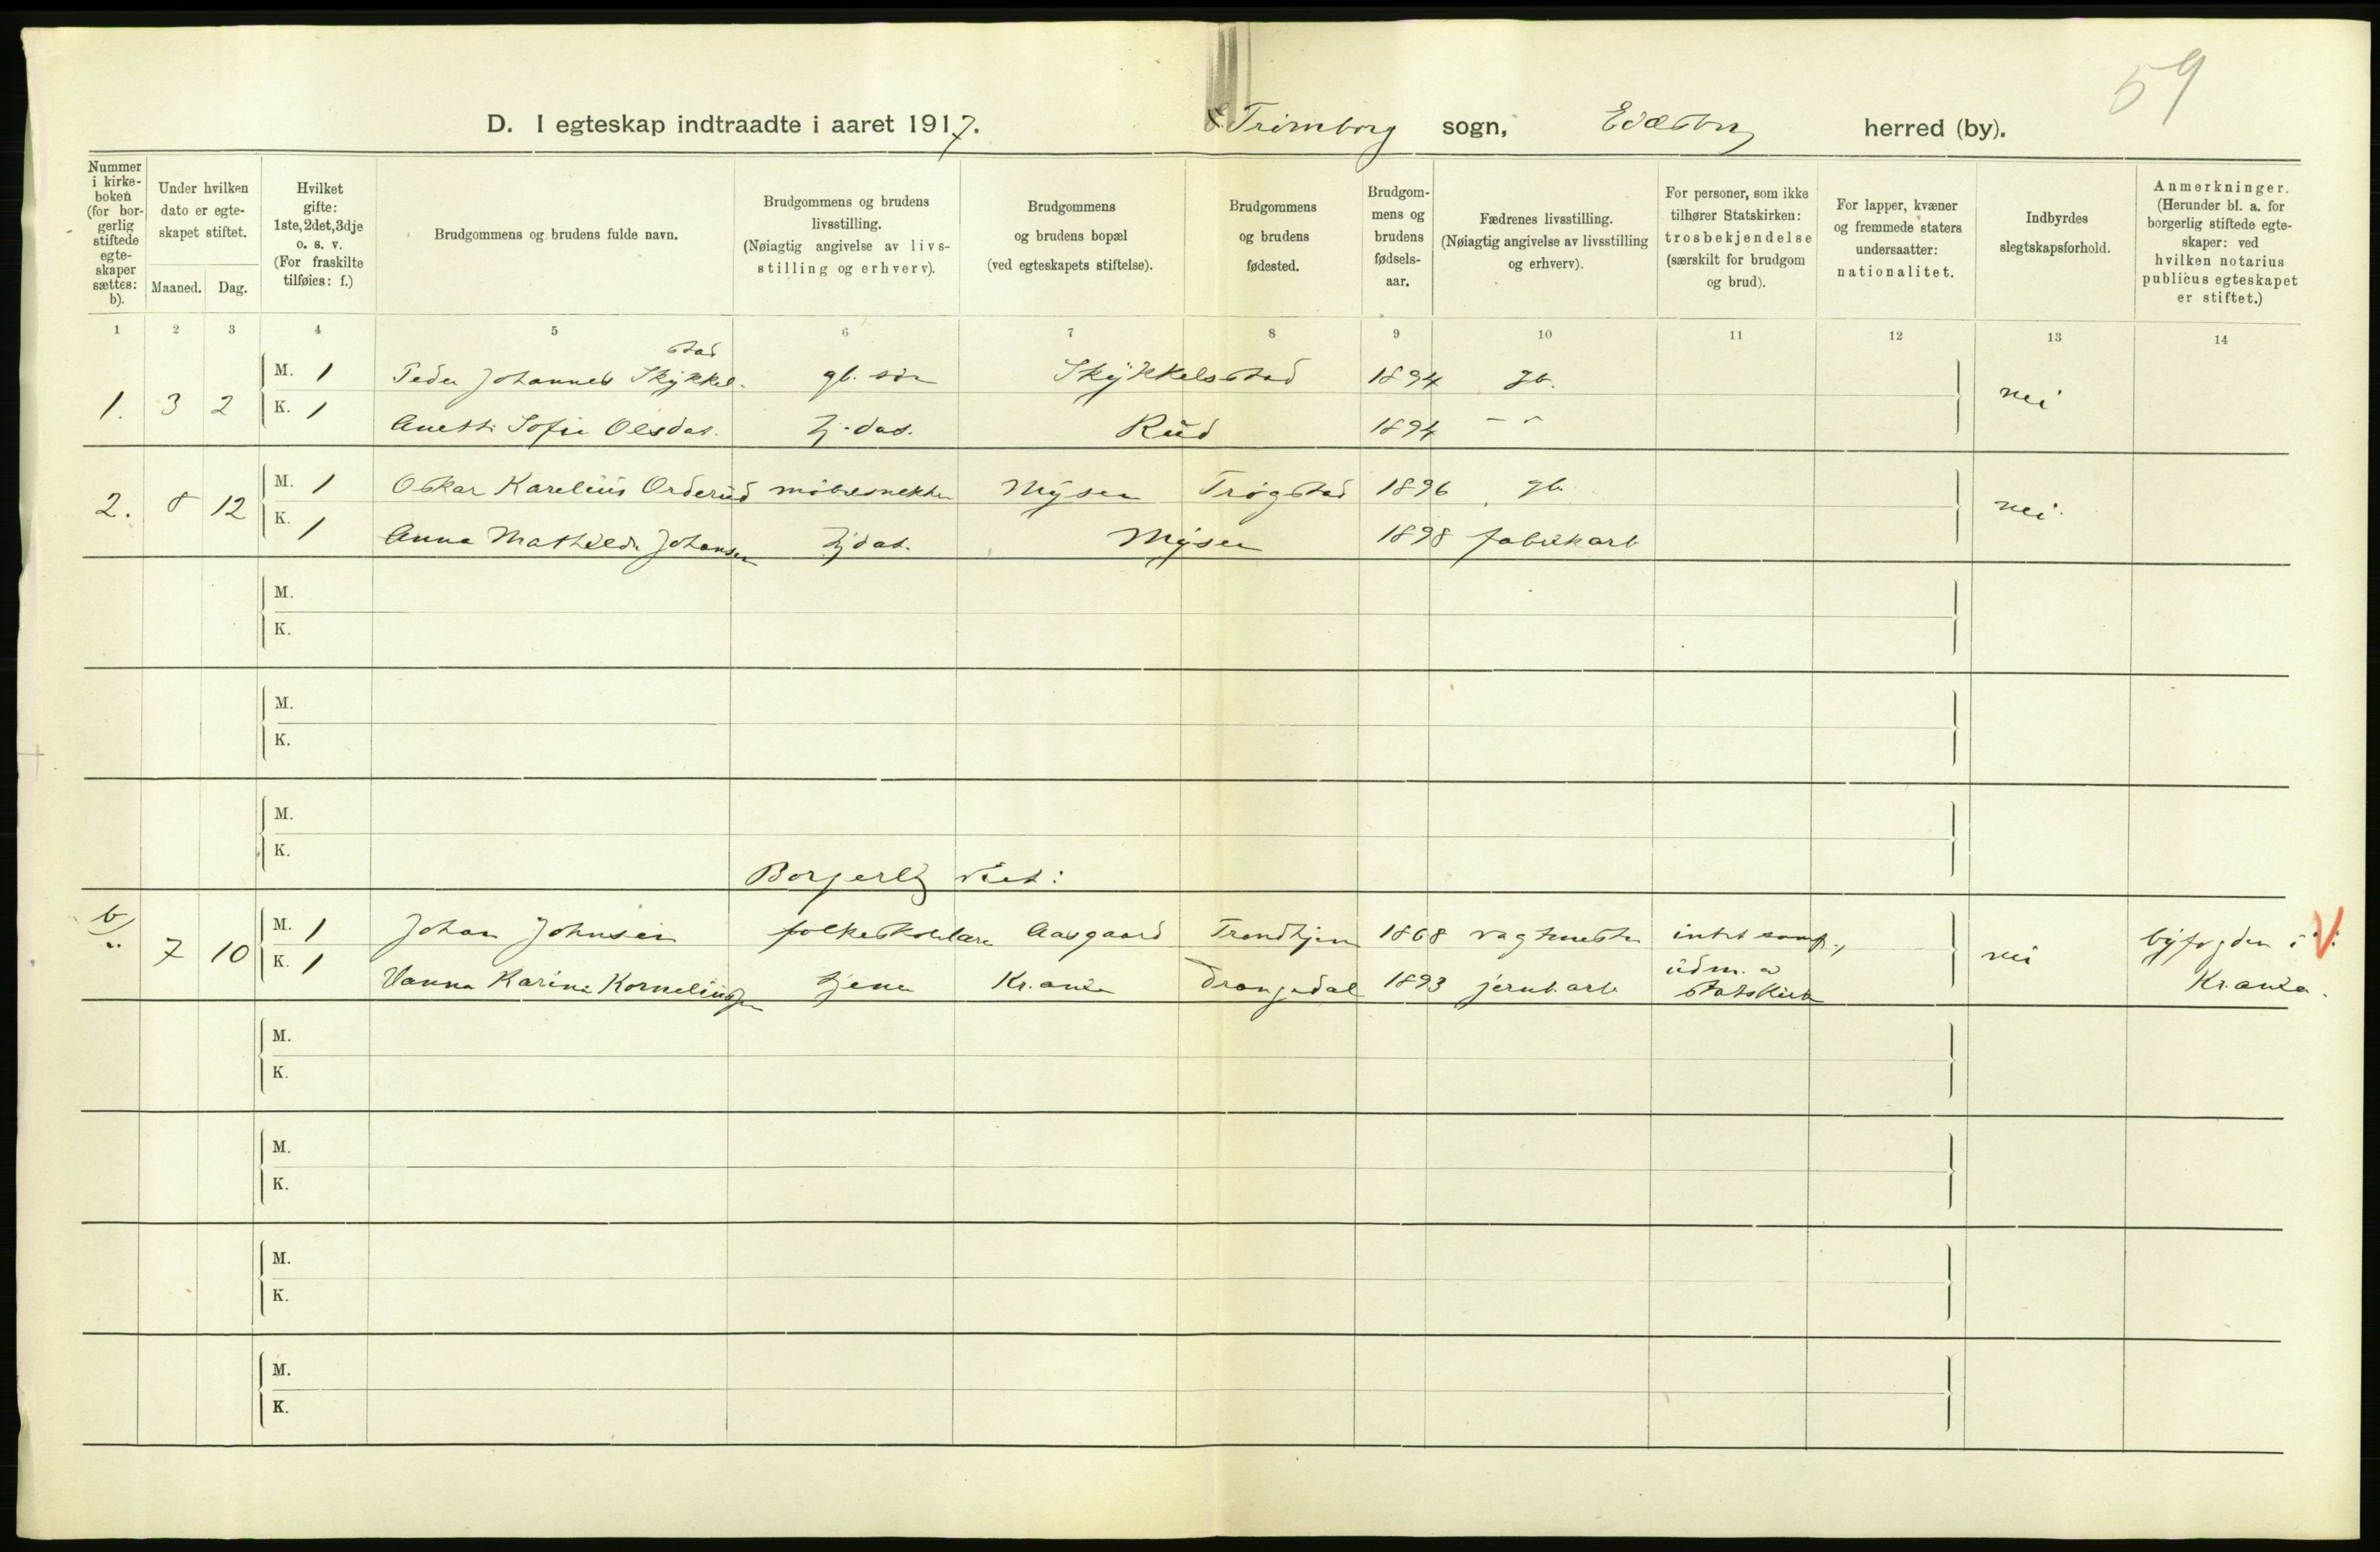 59
D. I egteskap indtraadte i aaret 1917. Trømborg sogn, Eidsberg herred (by).
Nummer i kirkeboken (for borgerlig stiftede egteskaper sættes: b).
Under hvilken dato er egteskapet stiftet.
Maaned. Dag.
Hvilket gifte: 1ste, 2det, 3dje o. s. v. (For fraskilte tilføies: f.)
Brudgommens og brudens fulde navn.
Brudgommens og brudens livsstilling. (Nøiagtig angivelse av livsstilling og erhverv).
Brudgommens og brudens bopæl (ved egteskapets stiftelse).
Brudgommens og brudens fødested.
Brudgommens og brudens fødselsaar.
Fædrenes livsstilling. (Nøiagtig angivelse av livsstilling og erhverv).
For personer, som ikke tilhører Statskirken: trosbekjendelse (særskilt for brudgom og brud).
For lapper, kvæner og fremmede staters undersaatter: nationalitet.
Indbyrdes slegtskapsforhold.
Anmerkninger. (Herunder bl. a. for borgerlig stiftede egteskaper: ved hvilken notarius publicus egteskapet er stiftet.)
1 2 3 4 5 6 7 8 9 10 11 12 13 14
stad
M. 1 Peder Johannes Skykkel- gb. søn Skykkelsstad 1894 gb.
1. 3 2 nei
K. 1 Anette Sofie Olsdat. hj. dat. Rud 1894 — "
M. 1 Oskar Karelius Orderud møbelsnekker Mysen Trøgstad 1896 gb.
2. 8 12 nei.
K. 1 Anna Mathilde Johansen hj dat. Mysen 1898 fabrikarb
M.
K.
M.
K.
M.
K.
Borgerlig viet:
b) M. 1 Johan Johnsen folkeskolelær Aasgaard Trondhjem 1868 vagtmester intet samf., byfogden i V
7 10 nei
K. 1 Vanna Karine Korneliussen tjene Kr.ania Drangedal 1893 jernb. arb. udm. a statskirk Kr.ania.
M.
K.
M.
K.
M.
K.
M.
K.